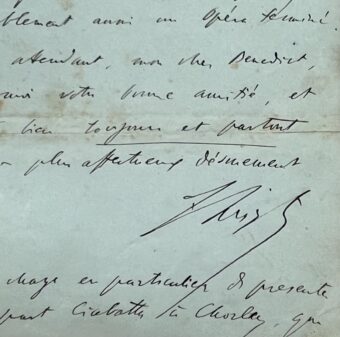 blement aussi un Opéra terminé.
attendant, mon cher Benedict,
moi votre bonne amitié, et
bien toujours et partout
plus affectueux dévouement
FLiszt
charge en particulier de présenter
part Ciabatta à Chorley, que